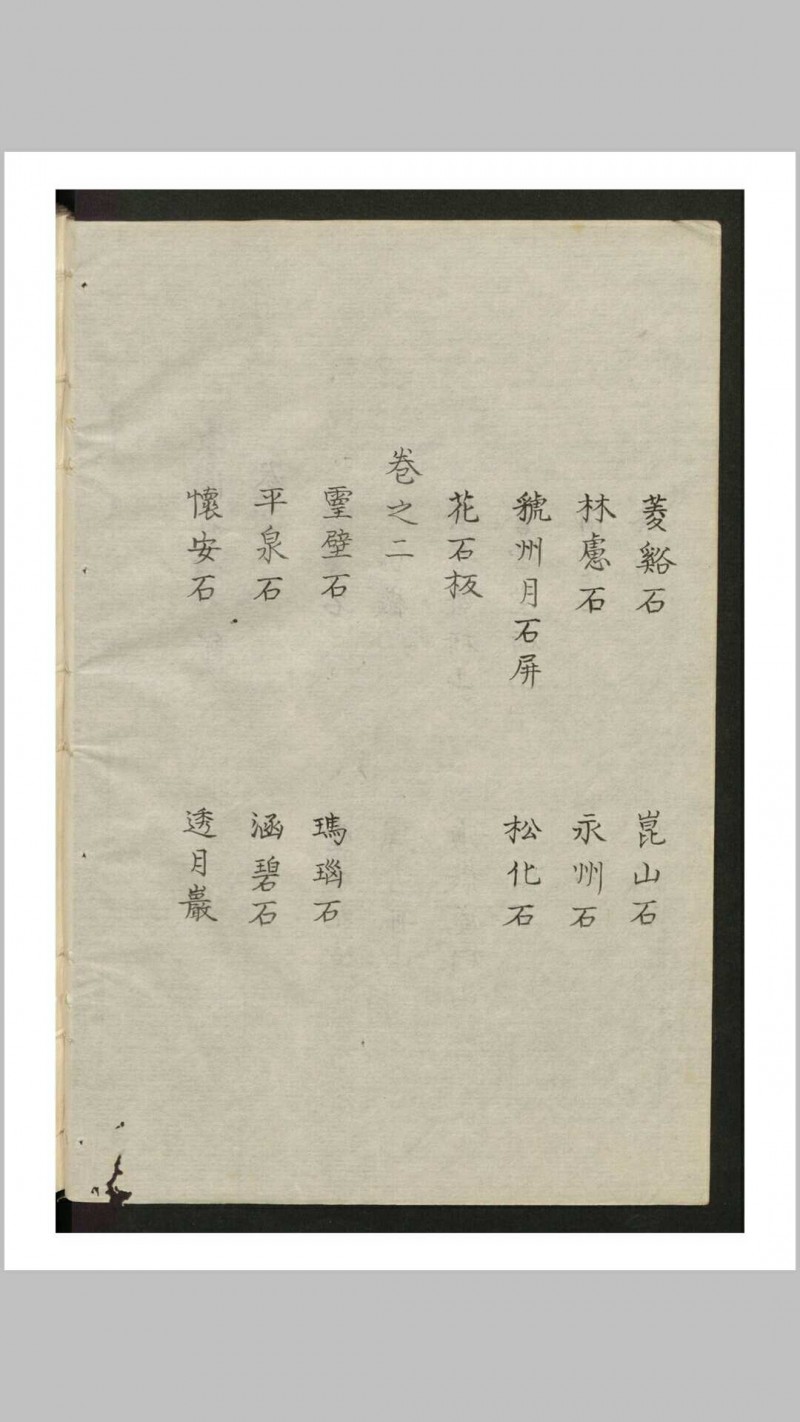 菱谿石 崑山石
林慮石 永州石
虢州月石屏 松化石
花石板
卷之二
霊壁石 瑪瑙石
平泉石 涵碧石
懷安石 透月巖